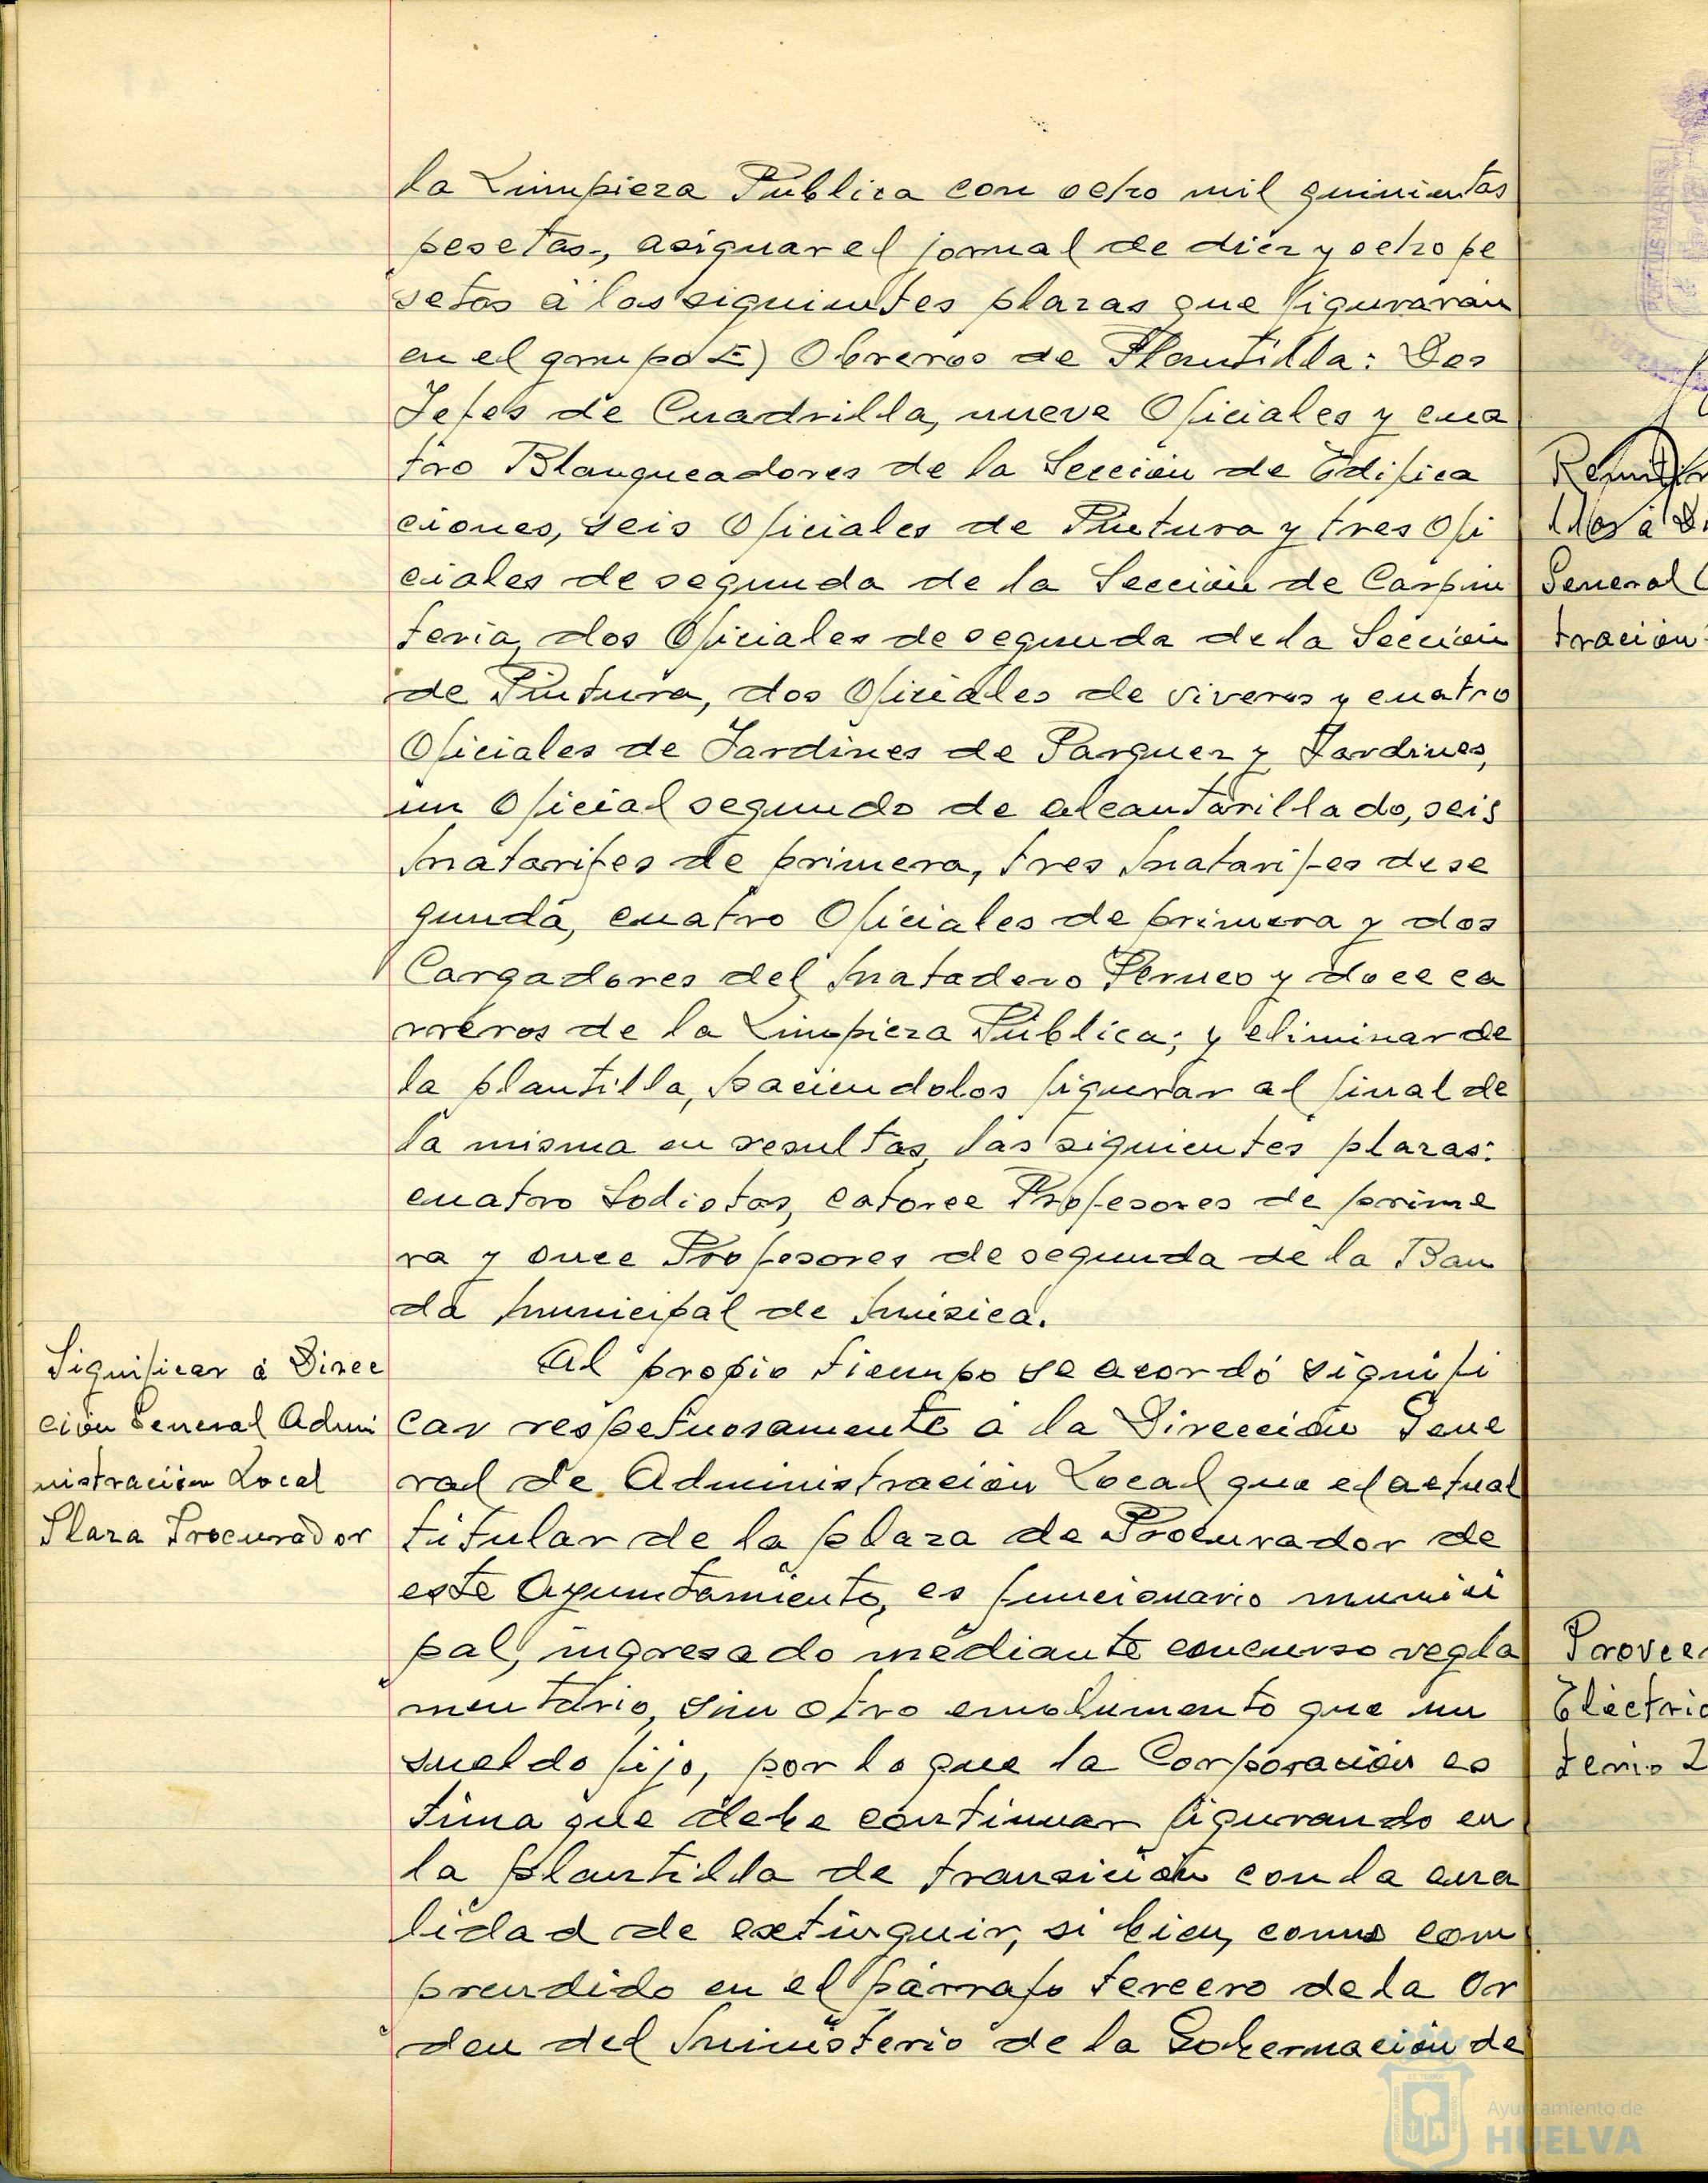 la Limpieza Pública con ocho mil quinientas
pesetas, asignar el jornal de diez y ocho pe
setas a las siguientes plazas que figurarán
en el grupo E) Obreros de Plantilla: Dos
Jefes de Cuadrilla, nueve Oficiales y cua
tro Blanqueadores de la Sección de Edifica
ciones, seis Oficiales de Pintura y tres Ofi
ciales de segunda de la Sección de Carpin
tería, dos Oficiales de segunda de la Sección
de Pintura, dos Oficiales de viveros y cuatro
Oficiales de Jardines de Parques y Jardines,
un Oficial segundo de alcantarillado, seis
Matarifes de primera, tres Matarifes de se
gunda, cuatro Oficiales de primera y dos
Cargadores del Matadero Perneo y doce ca
rreros de la Limpieza Pública; y eliminar de
la plantilla, haciendolos figurar al final de
la misma en resultas, las siguientes plazas:
cuatro Sodistas, catorce Profesores de prime
ra y once Profesores de segunda de la Ban
da Municipal de Música.
Significar a Direc
ción General Admi
nistración Local
Plaza Procurador
Al propio tiempo se acordó signifi
car respetuosamente a la Dirección Gene
ral de Administración Local que el actual
titular de la plaza de Procurador de
este Ayuntamiento, es funcionario munici
pal, ingresado mediante concurso regla
mentario, sin otro emolumento que un
sueldo fijo, por lo que la Corporación es
tima que debe continuar figurando en
la plantilla de transición con la cua
lidad de extinguir, si bien, como com
prendido en el párrafo tercero de la Or
den del Ministerio de la Gobernación de
General
tración
Provee
Eléctric
terio 2
Ayuntamiento de
HUELVA